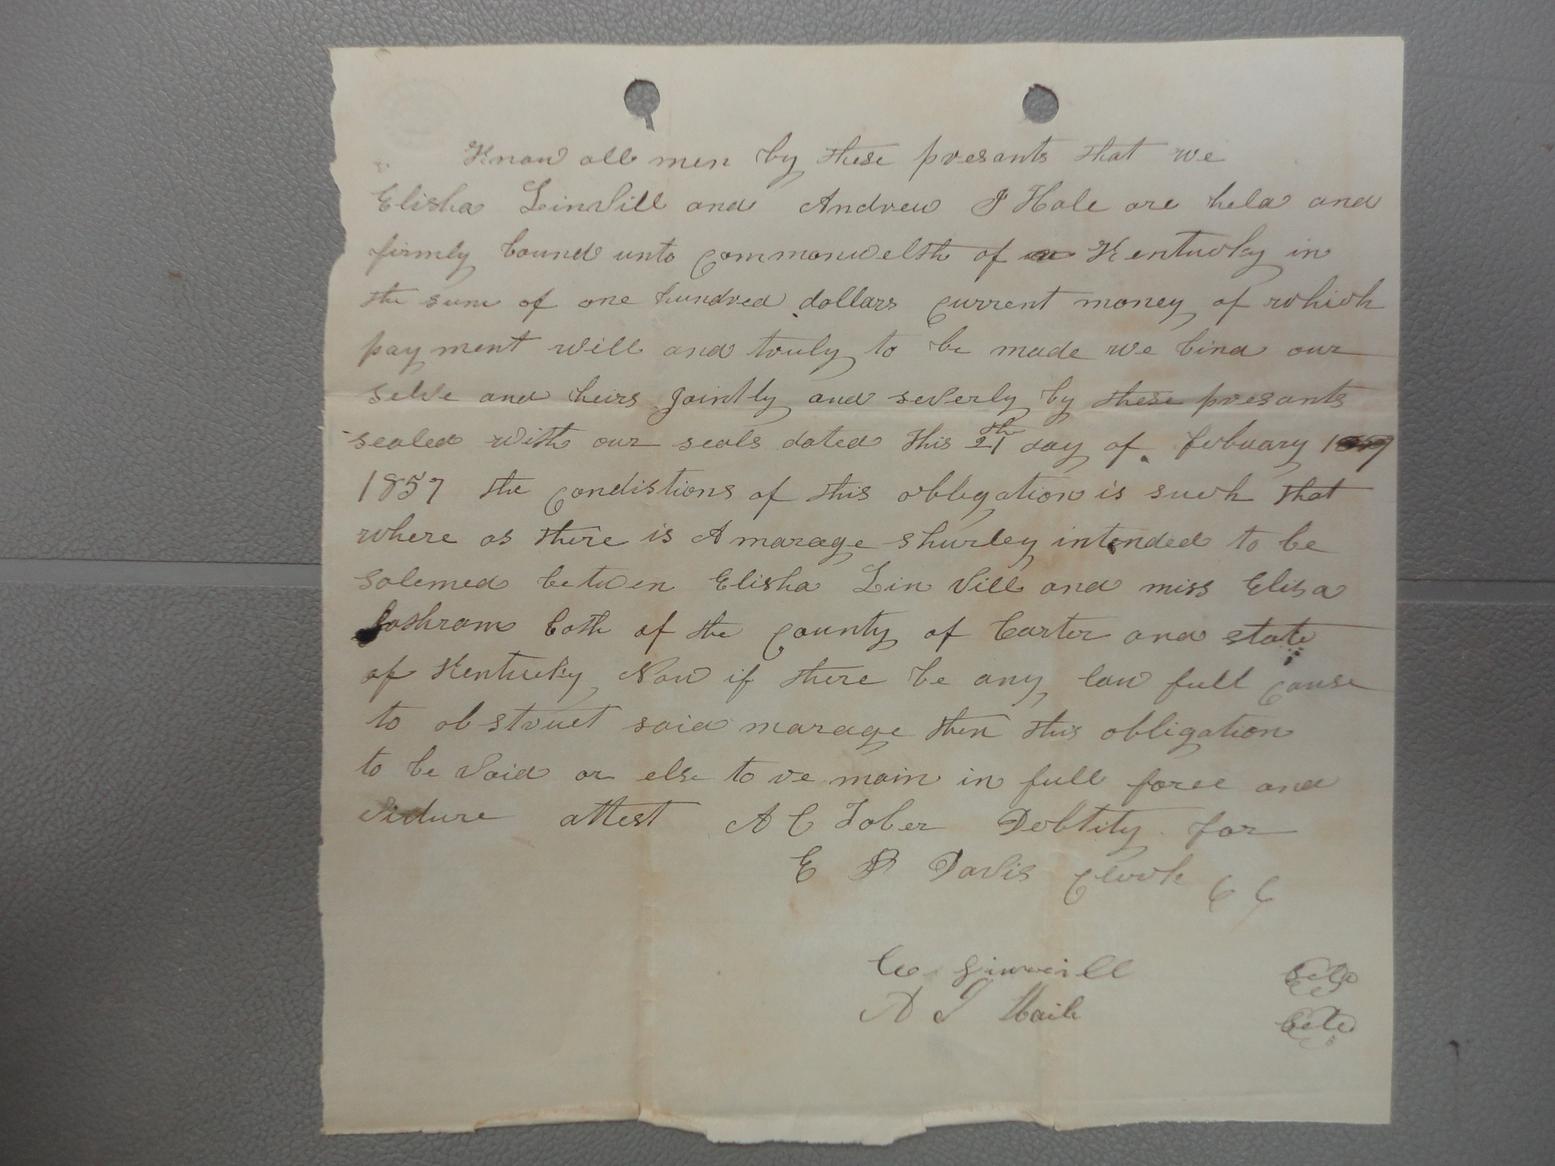 Know all men by these presants that we
Elisha Linvill and Andrew J Hale are held and
firmly bound unto Commonwelth of Kentucky in
the sum of one hundred dollars Current money of which
pay ment will and truly to be made we bind our
selve and heirs Jointly and severly by these presants
sealed with our seals dated this 21th day of febuary
1857 the Condistions of this obblegation is such that
where as there is A marage shurley intended to be
solemed betwen Elisha Lin vill and miss Elisa
both of the County of Carter and state
of Kentucky Now if there be any law full Cause
to obstruct said marage then this obligation
to be void or else to re main in full force and
virture attest A C Tober Debtity for
E B Davis Clerk C C
E Linvill
A J Hail